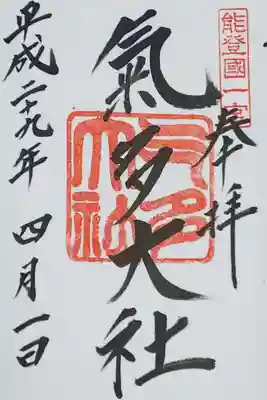 能登國一宮
奉拝
氣多大社
平成二十九年四月一日